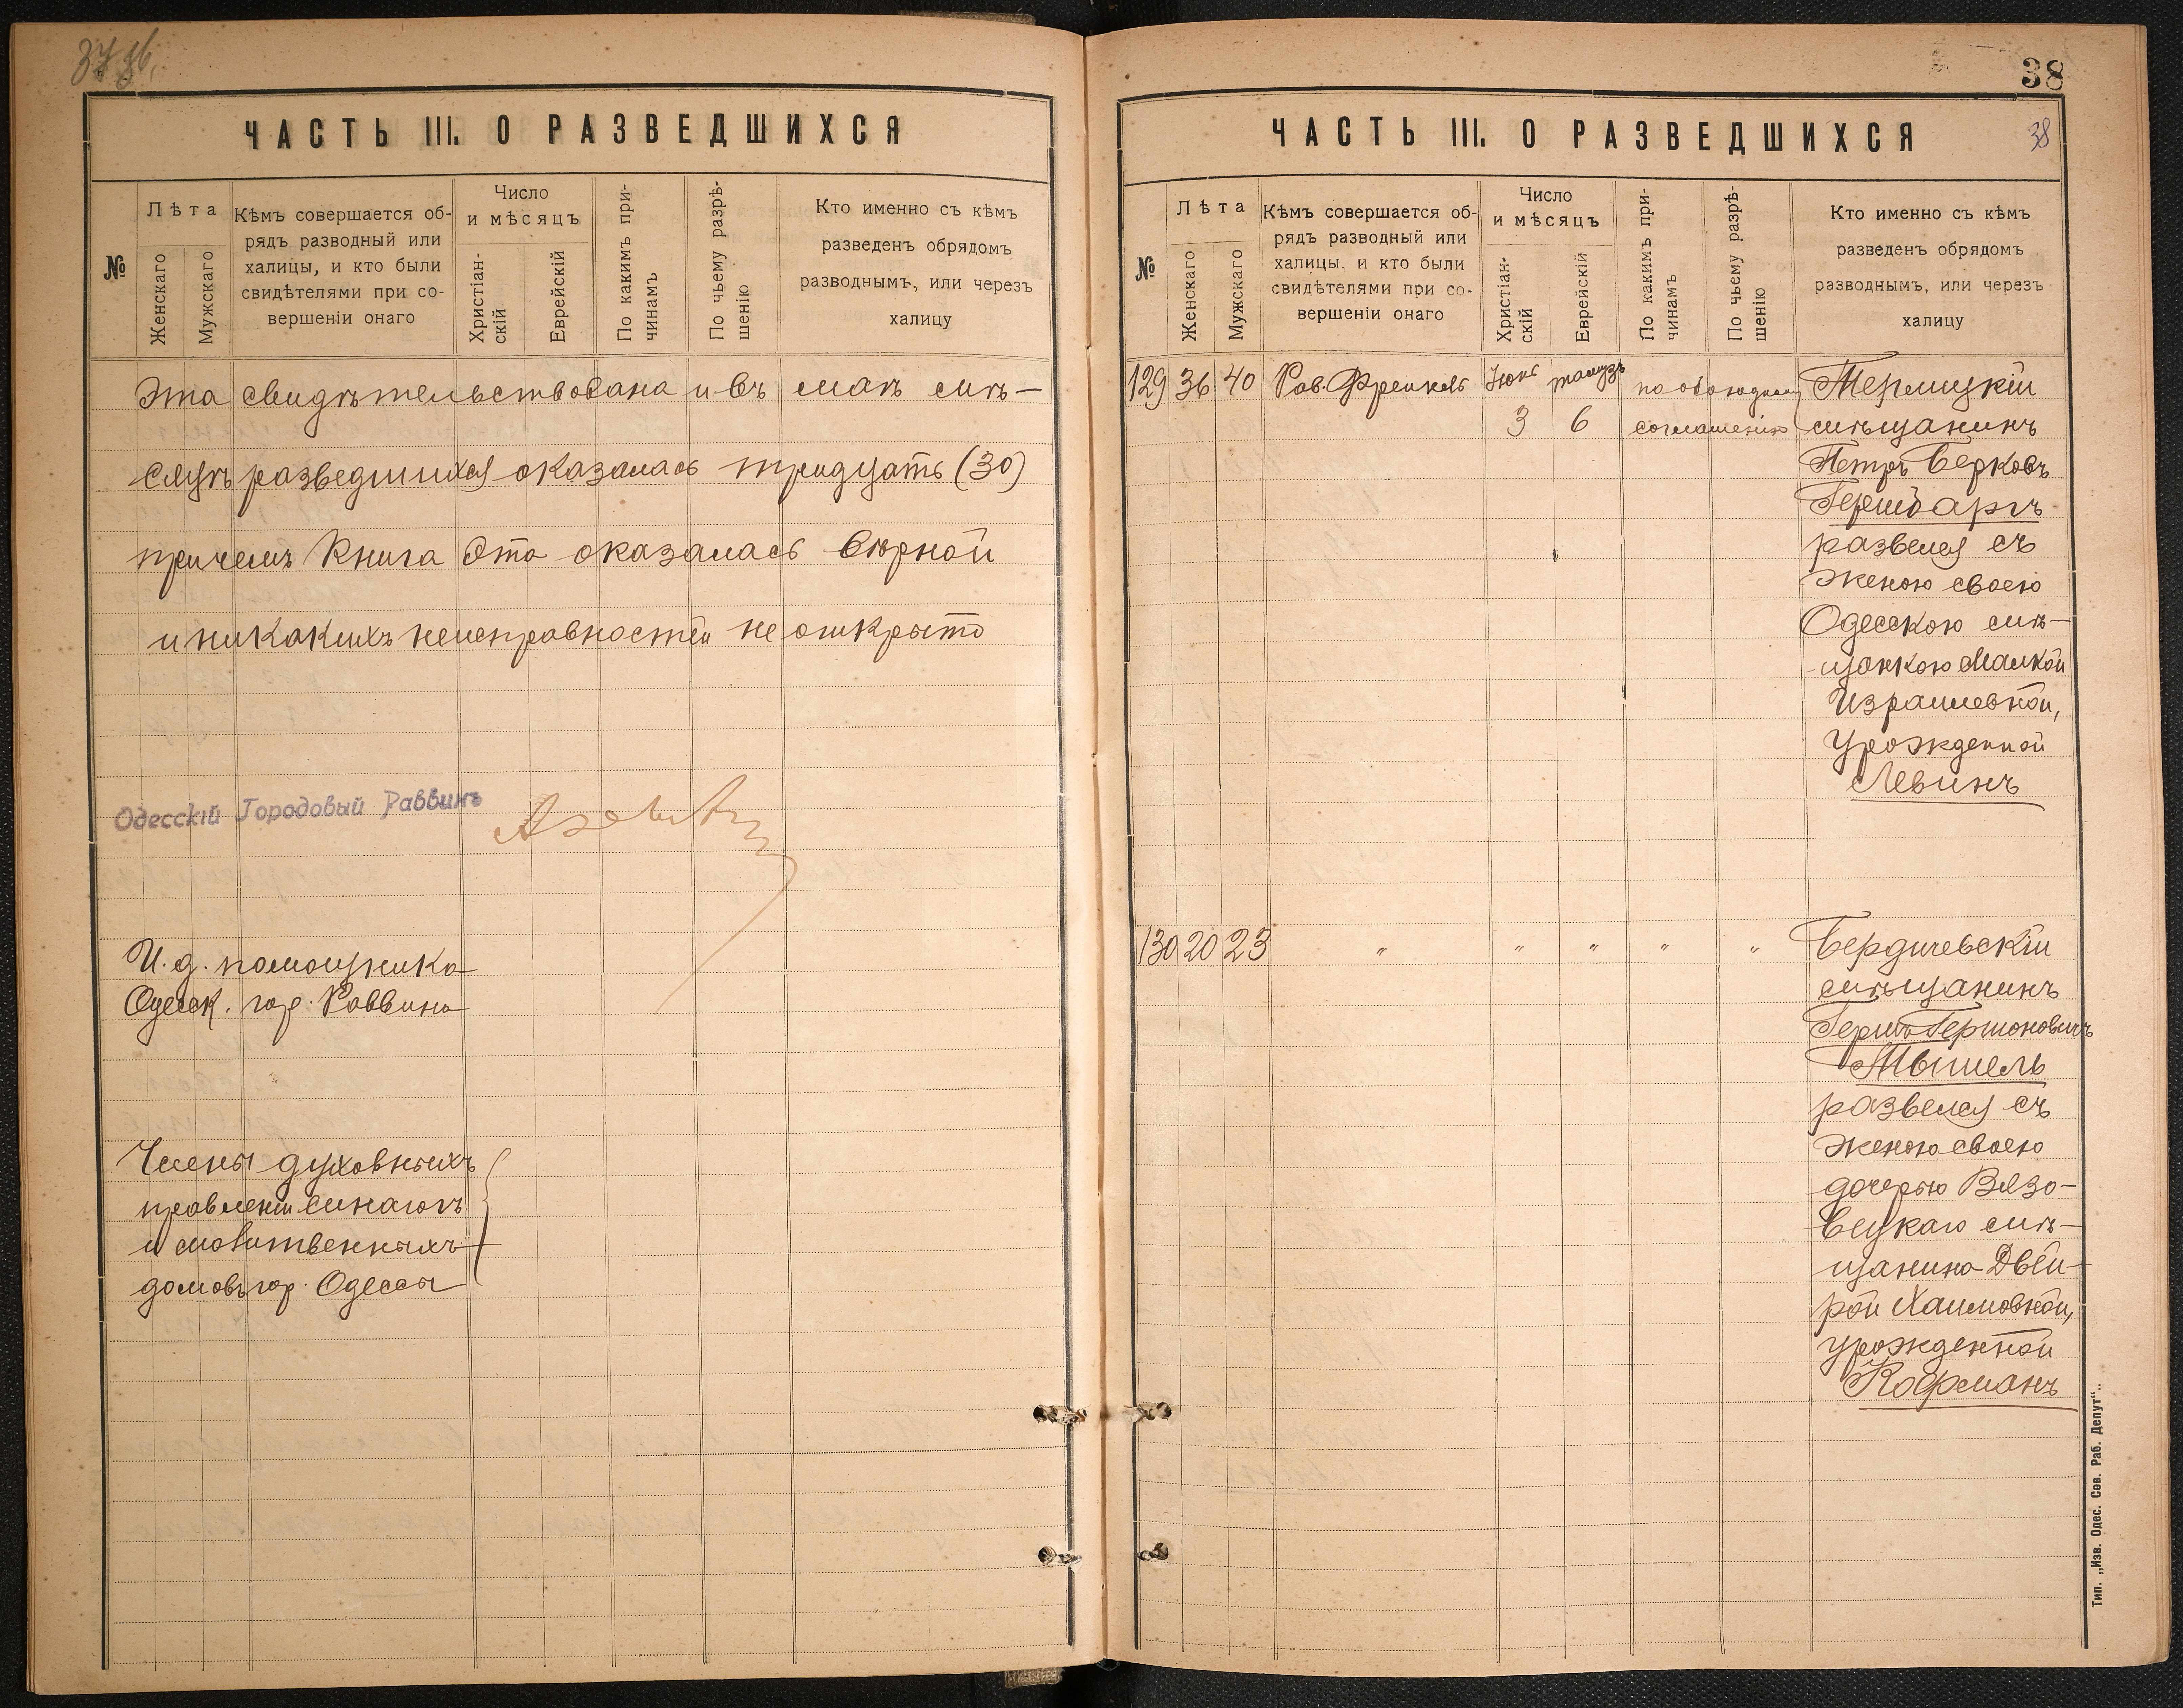 37 36.
ЧАСТЬ III. О РАЗВЕДШИХСЯ
№
Лѣта
Женскаго
Мужскаго
Кѣмъ совершается об-
рядъ разводный или
халицы, и кто были
свидѣтелями при со-
вершеніи онаго
Число
и мѣсяцъ
Христіан-
скій
Еврейскій
По какимъ при-
чинамъ
По чьему разрѣ-
шенію
Кто именно съ кѣмъ
разведенъ обрядомъ
разводнымъ, или черезъ
халицу
Эта свидѣтельствована и въ маѣ мѣ-
сяцѣ разведшихся оказалась тридцать (30)
причемъ Книга эта оказалась вѣрной
и никакихъ неисправностей не открыто
Одесскій Городовый Раввинъ
И. д. помощника
Одесск. гор. Раввина
Члены духовныхъ
правленій синагогъ
и молитвенныхъ
домовъ гор. Одессы
38
ЧАСТЬ III. О РАЗВЕДШИХСЯ
38
№
Лѣта
Женскаго
Мужскаго
Кѣмъ совершается об-
рядъ разводный или
халицы, и кто были
свидѣтелями при со-
вершеніи онаго
Число
и мѣсяцъ
Христіан-
скій
Еврейскій
По какимъ при-
чинамъ
По чьему разрѣ-
шенію
Кто именно съ кѣмъ
разведенъ обрядомъ
разводнымъ, или черезъ
халицу
129 36 40 Рав. Френкель Іюнь 3 тамузъ 6 по обоюдному соглашенію
мѣщанинъ
Петръ Берковъ
развелся съ
женою своею
Одесскою мѣ-
щанкою Малкой
Израилевной,
урожденной
Левинъ
130 20 23 " " " " "
Бердичевскій
мѣщанинъ
Гершъ Гершоновичъ
развелся съ
женою своею
дочерью Вязо-
вецкаго мѣ-
щанина Двей-
рой Хаимовной,
урожденной
Кофманъ
Тип. „Изв. Одес. Сов. Раб. Депут“.